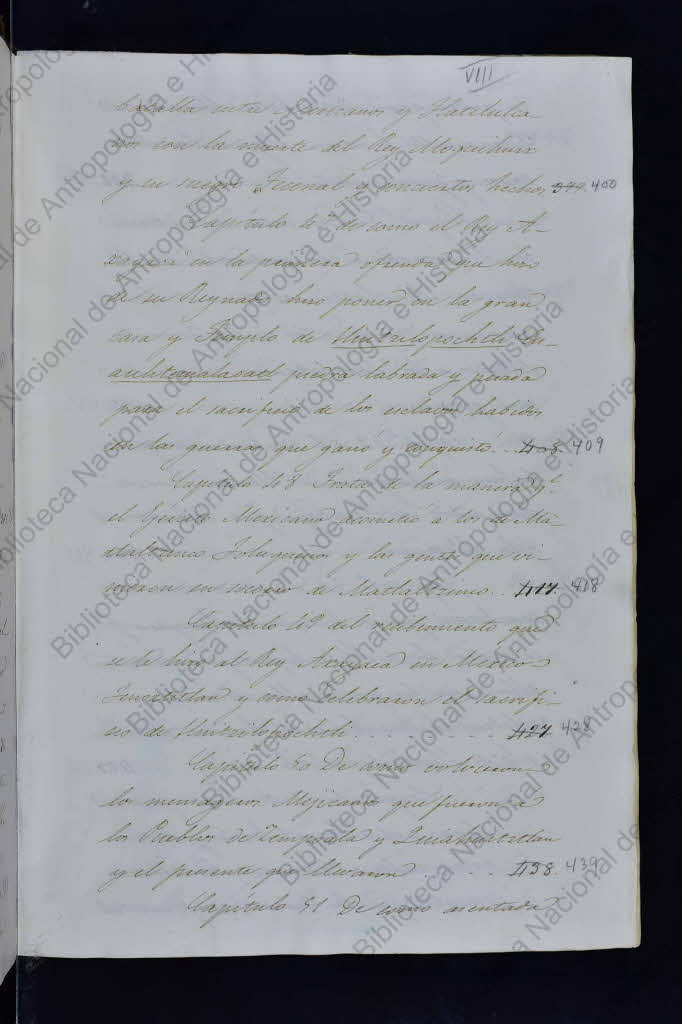 VIII
batalla entre Mexicanos y Tlatelulca-
nos con la muerte del Rey Moquihuix
y su suegro Teconal y conciertos hechos 399. 400
Capitulo 47 de como el Rey A-
xayaca en la primera ofrenda que hizo
en su Reynado hizo poner en la gran
casa y Templo de Huitzilopochtli
piedra labrada y pesada
para el sacrificio de los esclavos habidos
en las guerras que ganó y conquistó. . 408. 409
Capitulo 48 Trata de la manera q.
el Ejército Mexicano acometió a los de Ma-
Toluqueños y las gentes que vi-
nieron en socorro de Matlaltzinco. . 417. 418
Capitulo 49 del recibimiento que
se le hizo al Rey Axayaca en Mexico
Tenoxtitlan y como celebraron el sacrifi-
cio de Huitzilopochtli . . . . . . 427 428
Capitulo 50 De como volvieron
los mensageros Mejicanos que fueron a
los Pueblos de Zempoala y Quiahuiztlan
y el presente que llevaron . . . . 438. 439
Capitulo 51 De como asentada
Biblioteca Nacional de Antropología e Historia